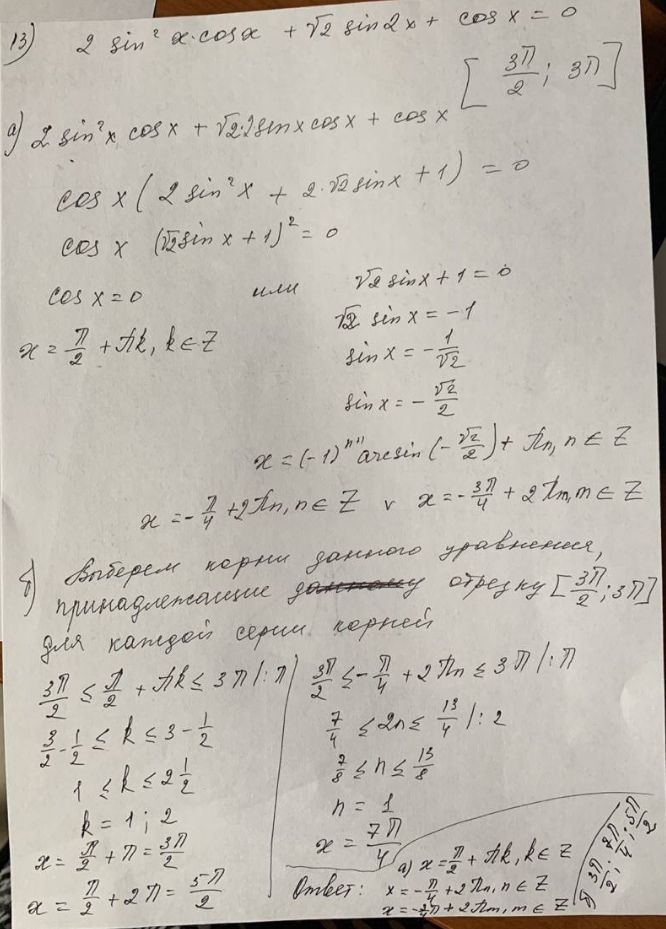 13) 2 sin² x · cos x + √2 sin 2x + cos x = 0
[3π/2; 3π]
а) 2 sin² x cos x + √2·2 sin x cos x + cos x
cos x (2 sin² x + 2·√2 sin x + 1) = 0
cos x (√2 sin x + 1)² = 0
cos x = 0 или √2 sin x + 1 = 0
√2 sin x = -1
x = π/2 + πk, k ∈ Z
sin x = -1/√2
sin x = -√2/2
x = (-1)ⁿ arcsin(-√2/2) + πn, n ∈ Z
x = -π/4 + 2πn, n ∈ Z v x = -3π/4 + 2πm, m ∈ Z
б) Выберем корни данного уравнения,
принадлежащие отрезку [3π/2; 3π]
для каждой серии корней
3π/2 ≤ π/2 + πk ≤ 3π |: π
3/2 - 1/2 ≤ k ≤ 3 - 1/2
1 ≤ k ≤ 2 1/2
k = 1; 2
x = π/2 + π = 3π/2
x = π/2 + 2π = 5π/2
3π/2 ≤ -π/4 + 2πn ≤ 3π |: π
7/4 ≤ 2n ≤ 13/4 |: 2
7/8 ≤ n ≤ 13/8
n = 1
x = 7π/4
Ответ: а) x = π/2 + πk, k ∈ Z
x = -π/4 + 2πn, n ∈ Z
x = -3/4π + 2πm, m ∈ Z
б) 3π/2; 7π/4; 5π/2